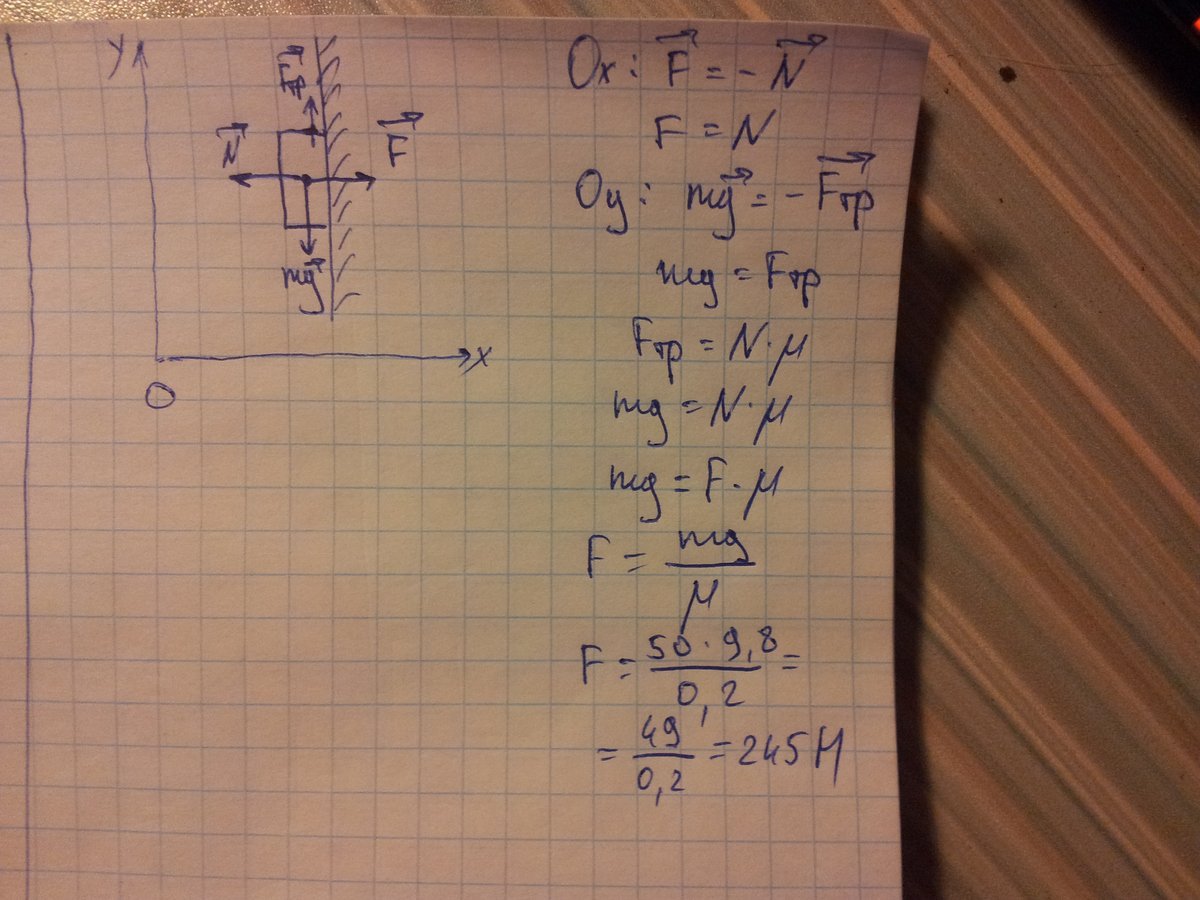 y
F⃗тр
N⃗
F⃗
mg⃗
x
O
Ox: F⃗ = - N⃗
F = N
Oy: mg⃗ = - F⃗тр
mg = Fтр
Fтр = N · μ
mg = N · μ
mg = F · μ
F = mg / μ
F = 50 · 9,8 / 0,2 =
= 49 / 0,2 = 245 Н